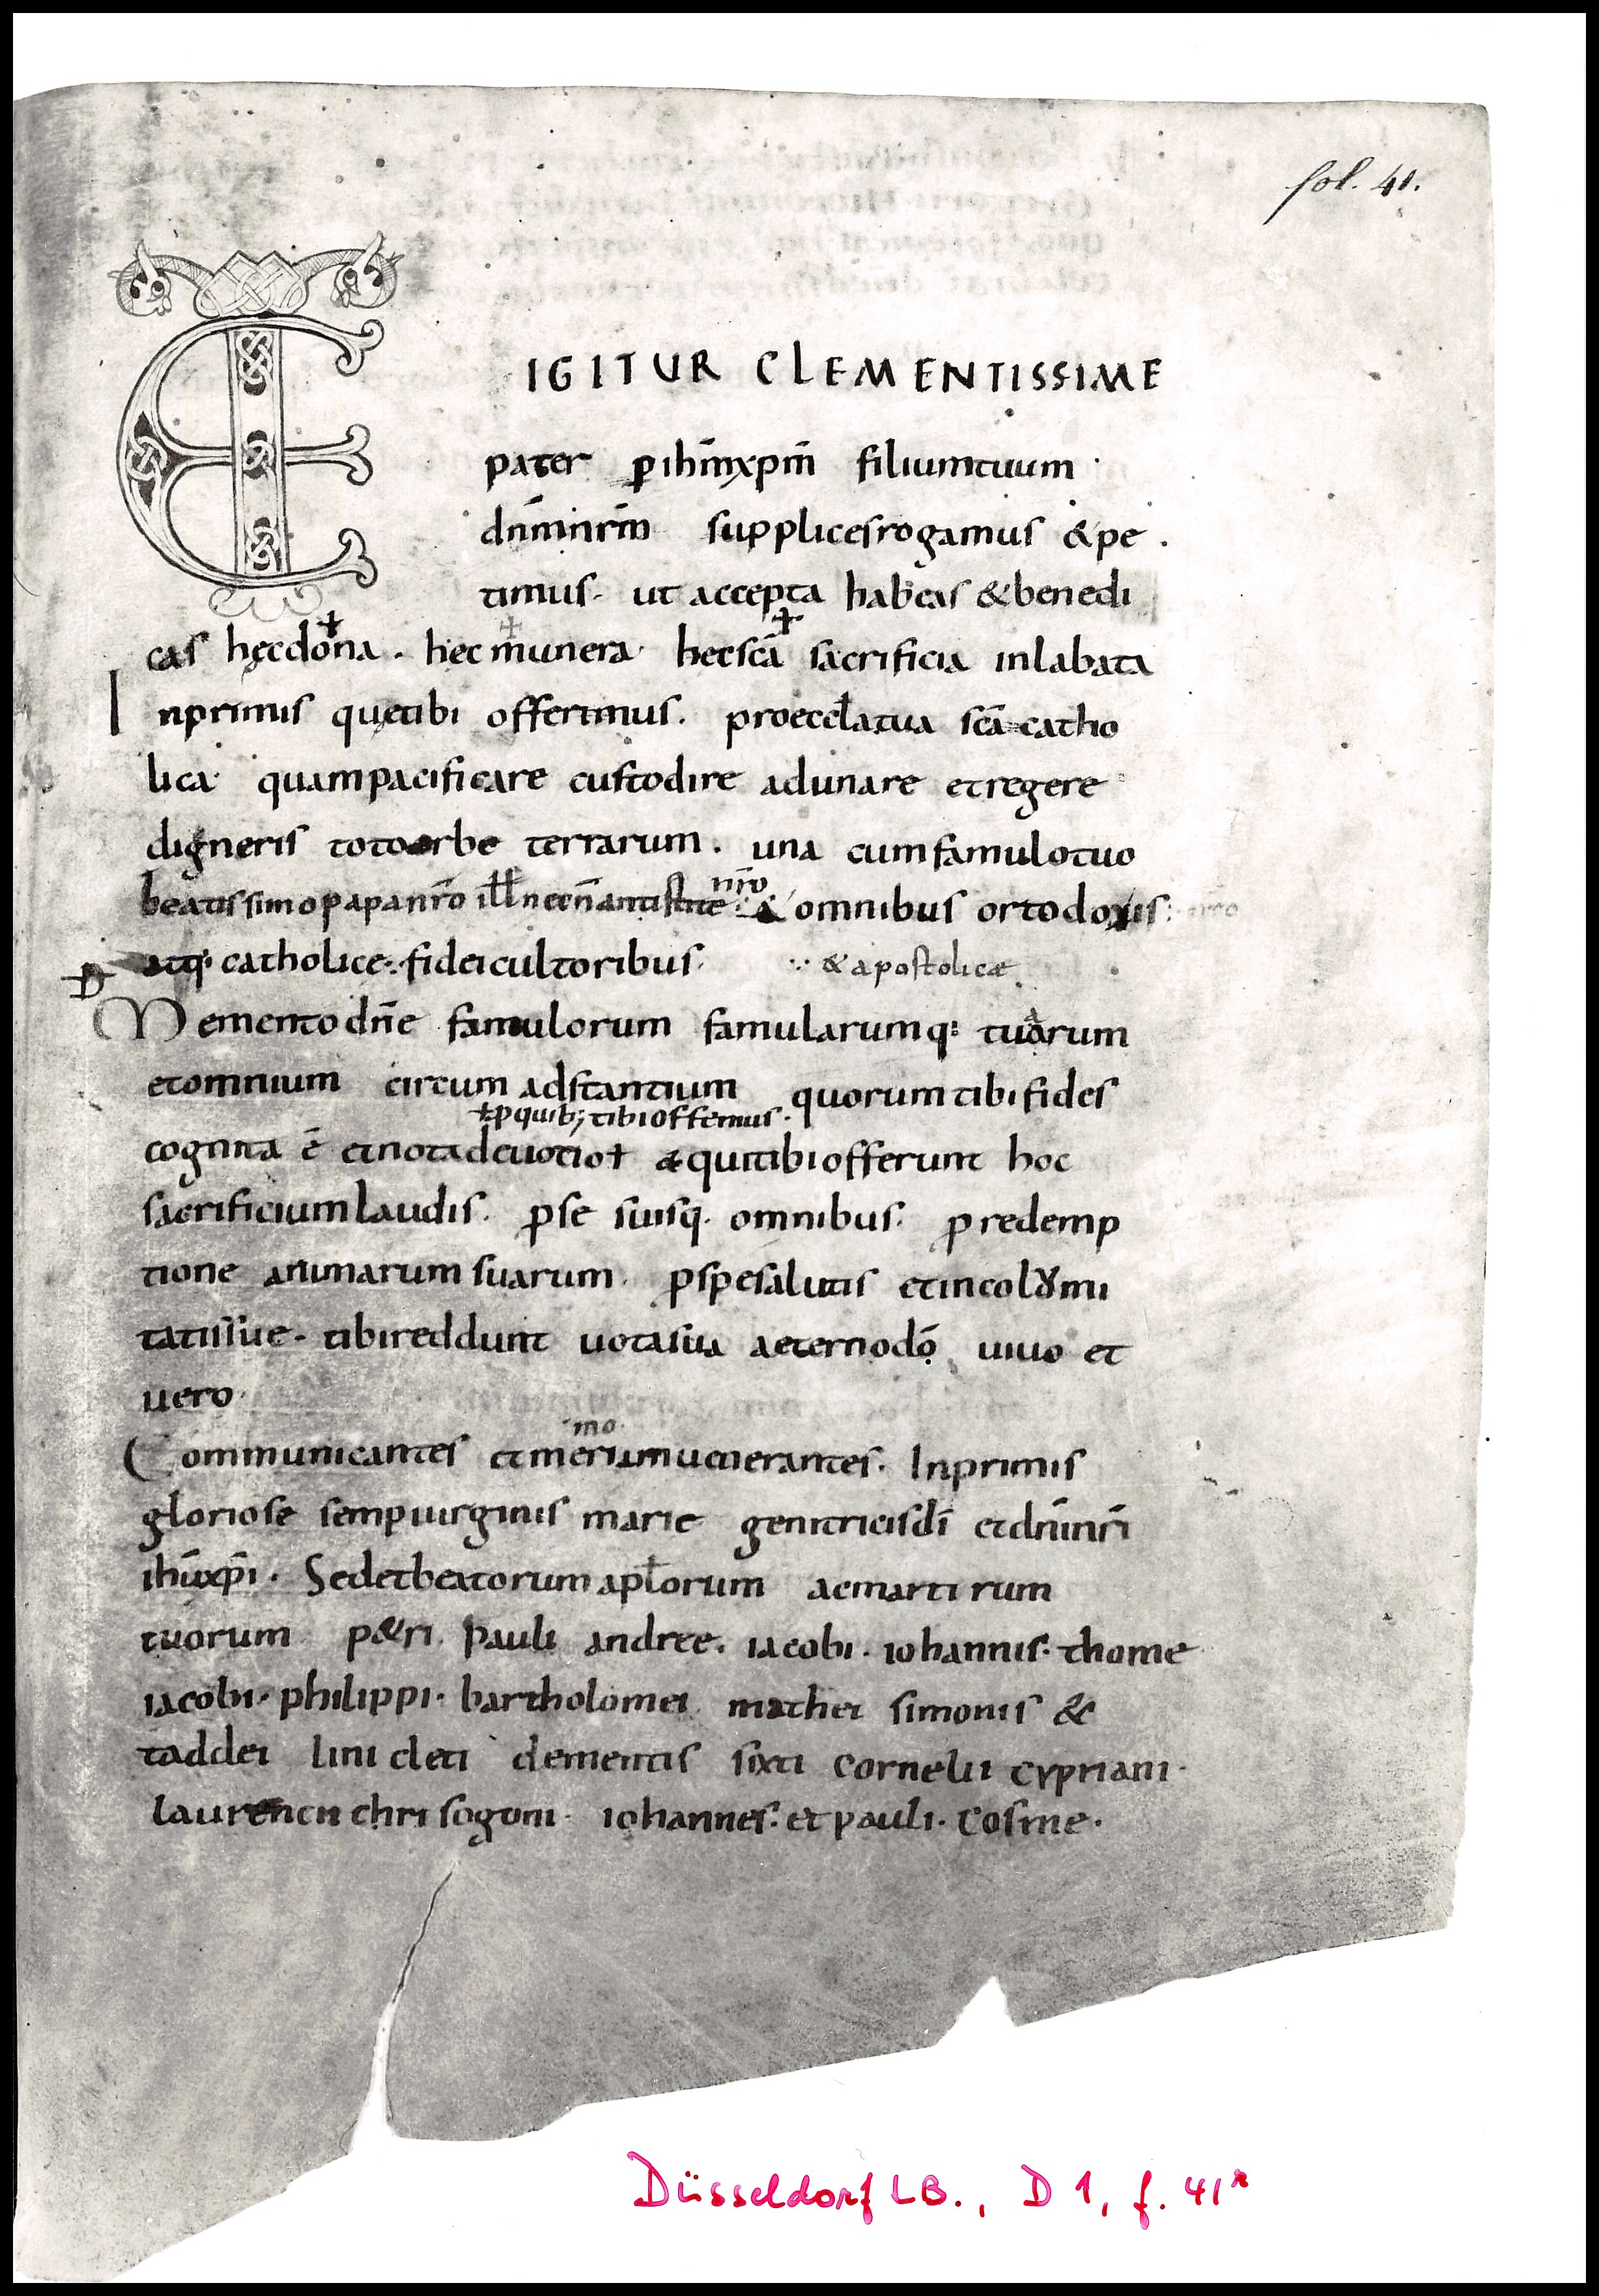 fol. 41.
TE IGITUR CLEMENTISSIME
pater p ihm̄xpm̄ filiumtuum
dnm̄nrm̄ supplicesrogamus &pe
timus· ut accepta habeas &benedi
cas hęcdona · hec munera· hecscā sacrificia inlabata
Inprimis quętibi offerimus. proeccłatua scā catho
lica· quampacificare custodire adunare etregere
digneris totoorbe terrarum. una cumfamulotuo
nr̄o
beatissimopapanr̄o ill necn̄antistite & omnibus ortodoxis
atq· catholice fideicultoribus· & apostolicæ
Mementodn̄e famulorum famularumq: tuarum
etomnium circum adstantium quorumtibifides
ł p quib; tibi offerimus·
cognita ē etnotadeuotio ł &quitibiofferunt hoc
sacrificiumlaudis. pse suisq. omnibus. p redemp
tione animarumsuarum. pspesalutis etincolumi
tatissue. tibireddunt uotasua aeternodō uiuo et
uero.
mo
Communicantes etmeriamuenerantes. Inprimis
gloriose sempuirginis marie genitricisdī etdn̄inr̄i
ihūxp̄i. Sedetbeatorum apłorum acmartirum
tuorum p&ri. pauli andree. iacobi. iohannis. thome
iacobi. philippi. bartholomei mathei simonis &
taddei lini cleti clementis sixti cornelii cypriani.
laurencii chrisogoni. iohannes. et pauli. cosme.
Düsseldorf LB., D 1, f. 41r